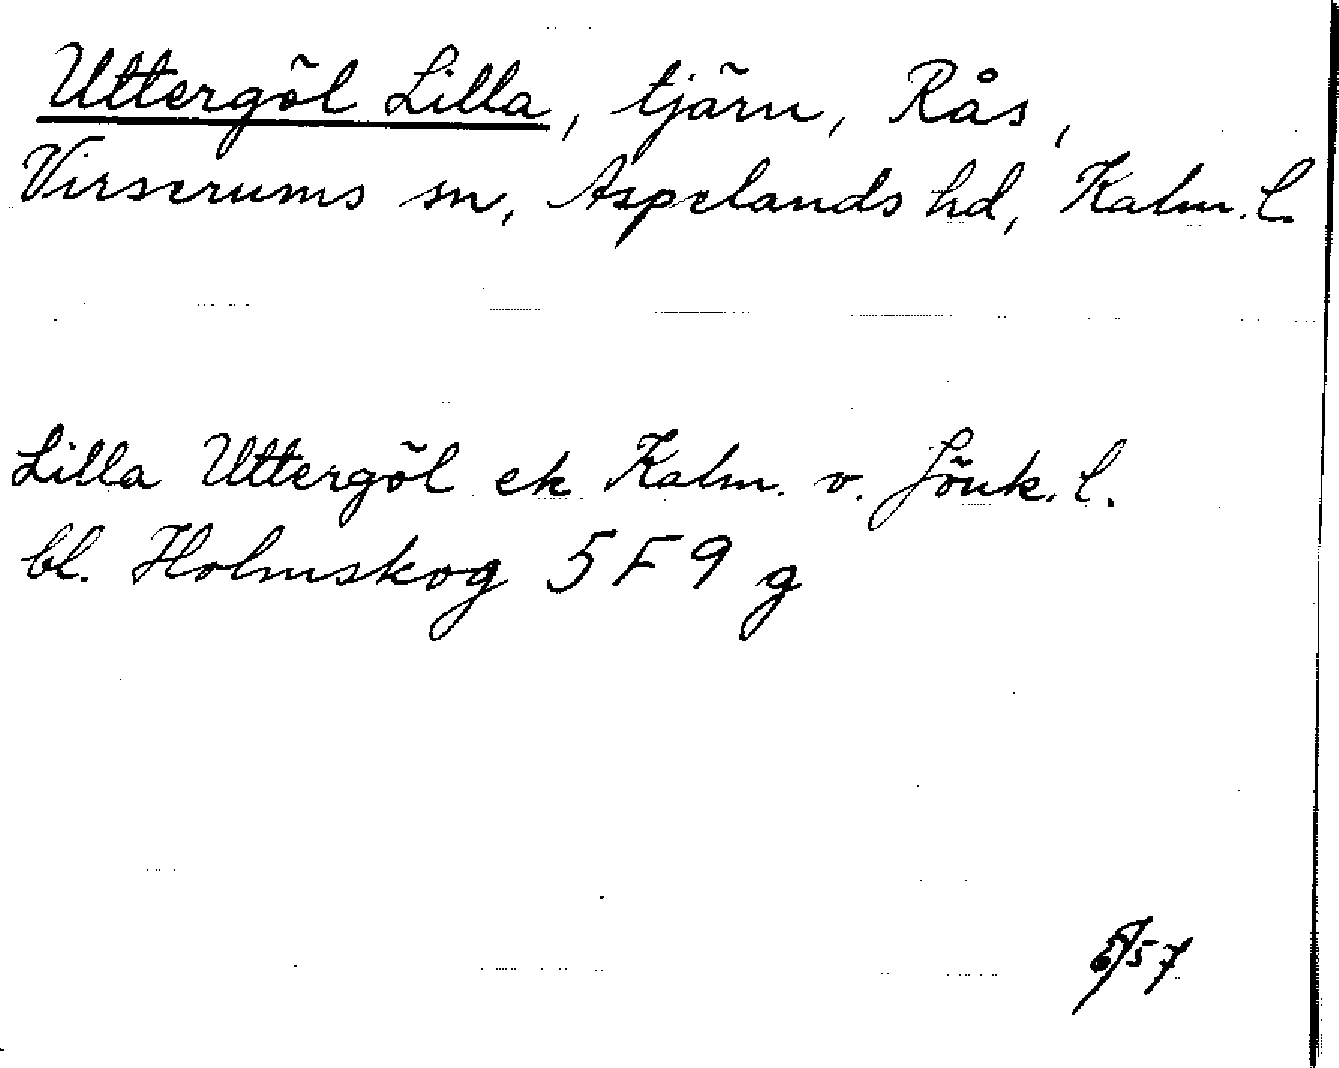 Uttergöl Lilla, tjärn, Rås,
Virserums sn, Aspelands hd, Kalm. l.
Lilla Uttergöl ek Kalm. v. Jönk. l.
bl. Holmskog 5 F 9 g